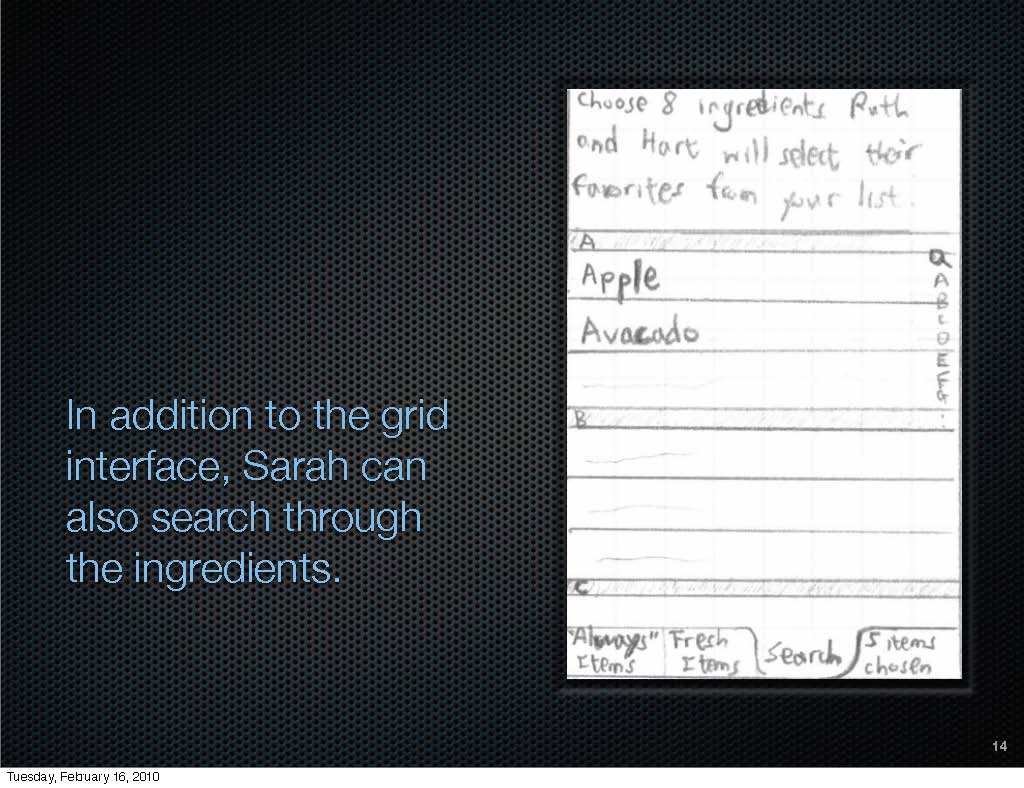 In addition to the grid
interface, Sarah can
also search through
the ingredients.
Choose 8 ingredients Ruth
and Hart will select their
favorites from your list.
A
Apple
Avacado
B
C
Q
A
B
C
D
E
F
G
"Always"
Items
Fresh
Items
Search
5 items
chosen
14
Tuesday, February 16, 2010